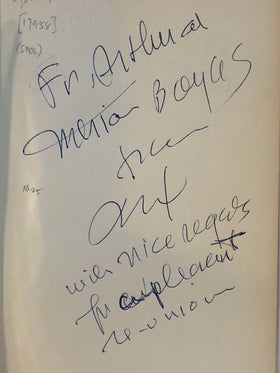 [17958]
(SMOL)
For Arthur and
Marion Boyars
from
1605
with nice regards
for a pleasant
re-union